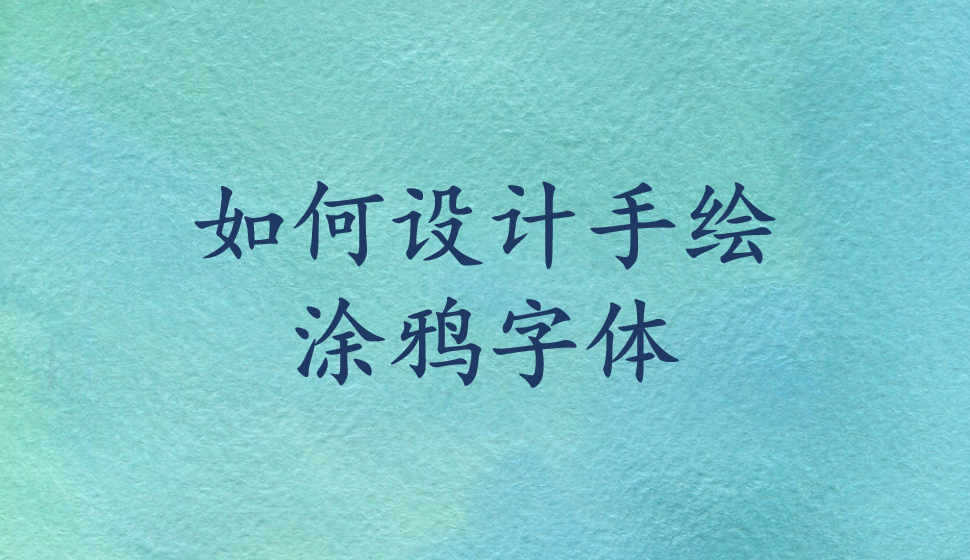 如何设计手绘
涂鸦字体